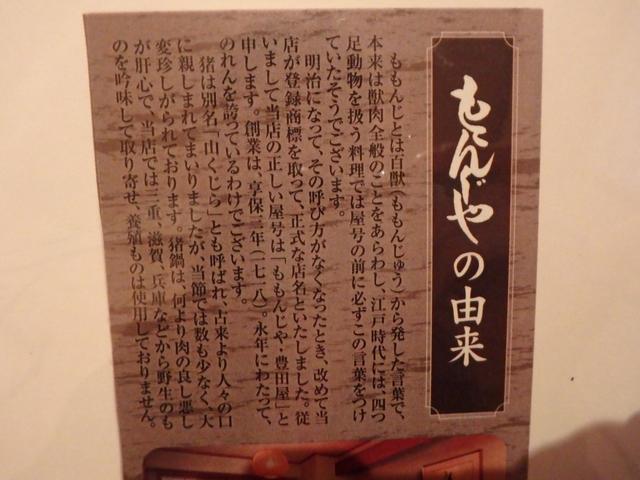 ももんじやの由来
ももんじとは百獣（ももんじゅう）から発した言葉で、
本来は獣肉全般のことをあらわし、江戸時代には、四つ
足動物を扱う料理では屋号の前に必ずこの言葉をつけ
ていたそうでございます。
明治になって、その呼び方がなくなったとき、改めて当
店が登録商標を取って、正式な店名といたしました。従
いまして当店の正しい屋号は「ももんじや・豊田屋」と
申します。創業は、享保三年（一七一八）。永年にわたって、
のれんを誇っているわけでございます。
猪は別名「山くじら」とも呼ばれ、古来より人々の口
に親しまれてまいりましたが、当節では数も少なく、大
変珍しがられております。猪鍋は、何より肉の良し悪し
が肝心で、当店では三重、滋賀、兵庫などから野生のも
のを吟味して取り寄せ、養殖ものは使用しておりません。